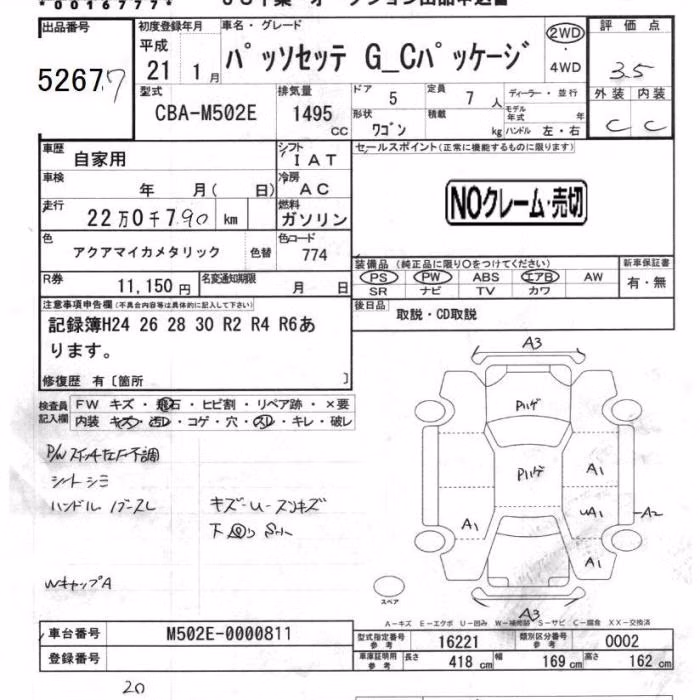 *0016777*
出品番号
52677
初度登録年月
平成
21 1月
車名・グレード
パッソセッテ G_Cパッケージ
2WD
・
4WD
評価点
3.5
外装 内装
C C
型式
CBA-M502E
排気量
1495
CC
ドア
5
定員
7 人
ディーラー・並行
モデル年式 年
形状
ワゴン
積載
kg
ハンドル 左・右
車歴
自家用
シフト
IAT
セールスポイント(正常に機能するものに限ります)
NOクレーム・売切
車検
年 月( 日)
冷房
AC
走行
22万0千790 km
燃料
ガソリン
色
アクアマイカメタリック
色替
色コード
774
装備品(純正品に限り○をつけてください)
PS PW ABS エアB AW
SR ナビ TV カワ
新車保証書
有・無
R券
11,150円
名変通知期限
月 日
後日品
取説・CD取説
注意事項申告欄(不具合内容等は具体的に記入して下さい)
記録簿H24 26 28 30 R2 R4 R6あ
ります。
修復歴 有〔箇所 〕
検査員
記入欄
FW キズ・飛石・ヒビ割・リペア跡・×要
内装 キズ・汚レ・コゲ・穴・スレ・キレ・破レ
P/Wスイッチ左F不調
シートシミ
ハンドル
キズ・U・スリキズ
下回りサビ
WキャップA
A3
Pハゲ
Pハゲ
A1
A1
UA1
A2
A1
A3
スペア
A-キズ E-エクボ U-凹み W-補修跡 S-サビ C-腐食 XX-交換済
車台番号
M502E-0000811
登録番号
型式指定番号
参考
16221
類別区分番号
参考
0002
車庫証明用
参考
長さ
418 cm
幅
169 cm
高さ
162 cm
20